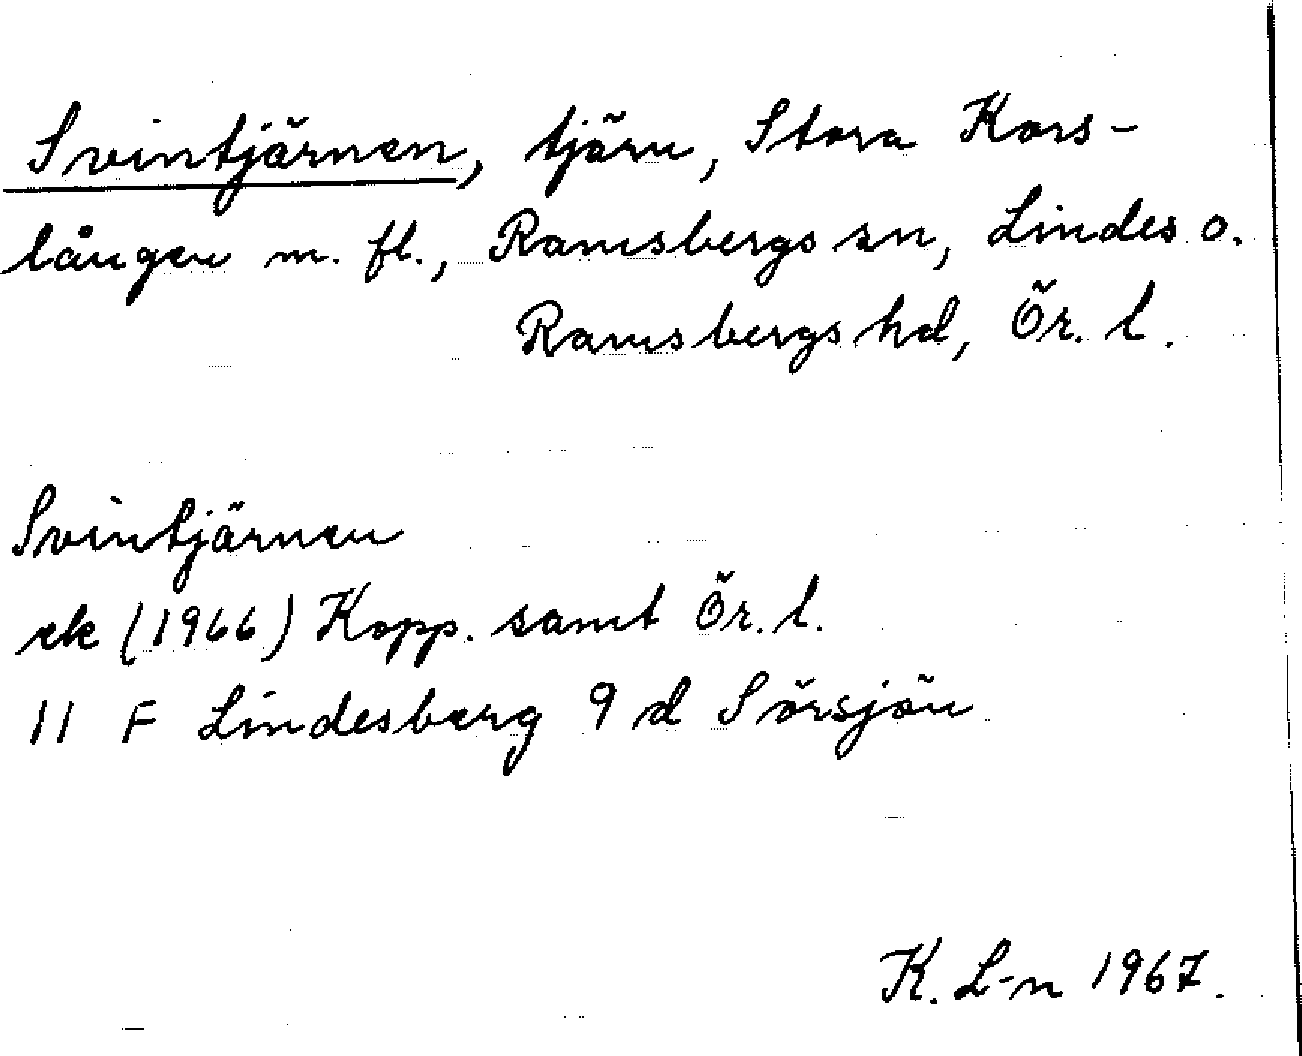 Svintjärnen, tjärn, Stora Kors-
lången m. fl., Ramsbergs sn, Lindes o.
Ramsbergs hd, Ör. l.
Svintjärnen
ek (1966) Kopp. samt Ör. l.
11 F Lindesberg 9 d Sörsjön
K. L-n 1967.